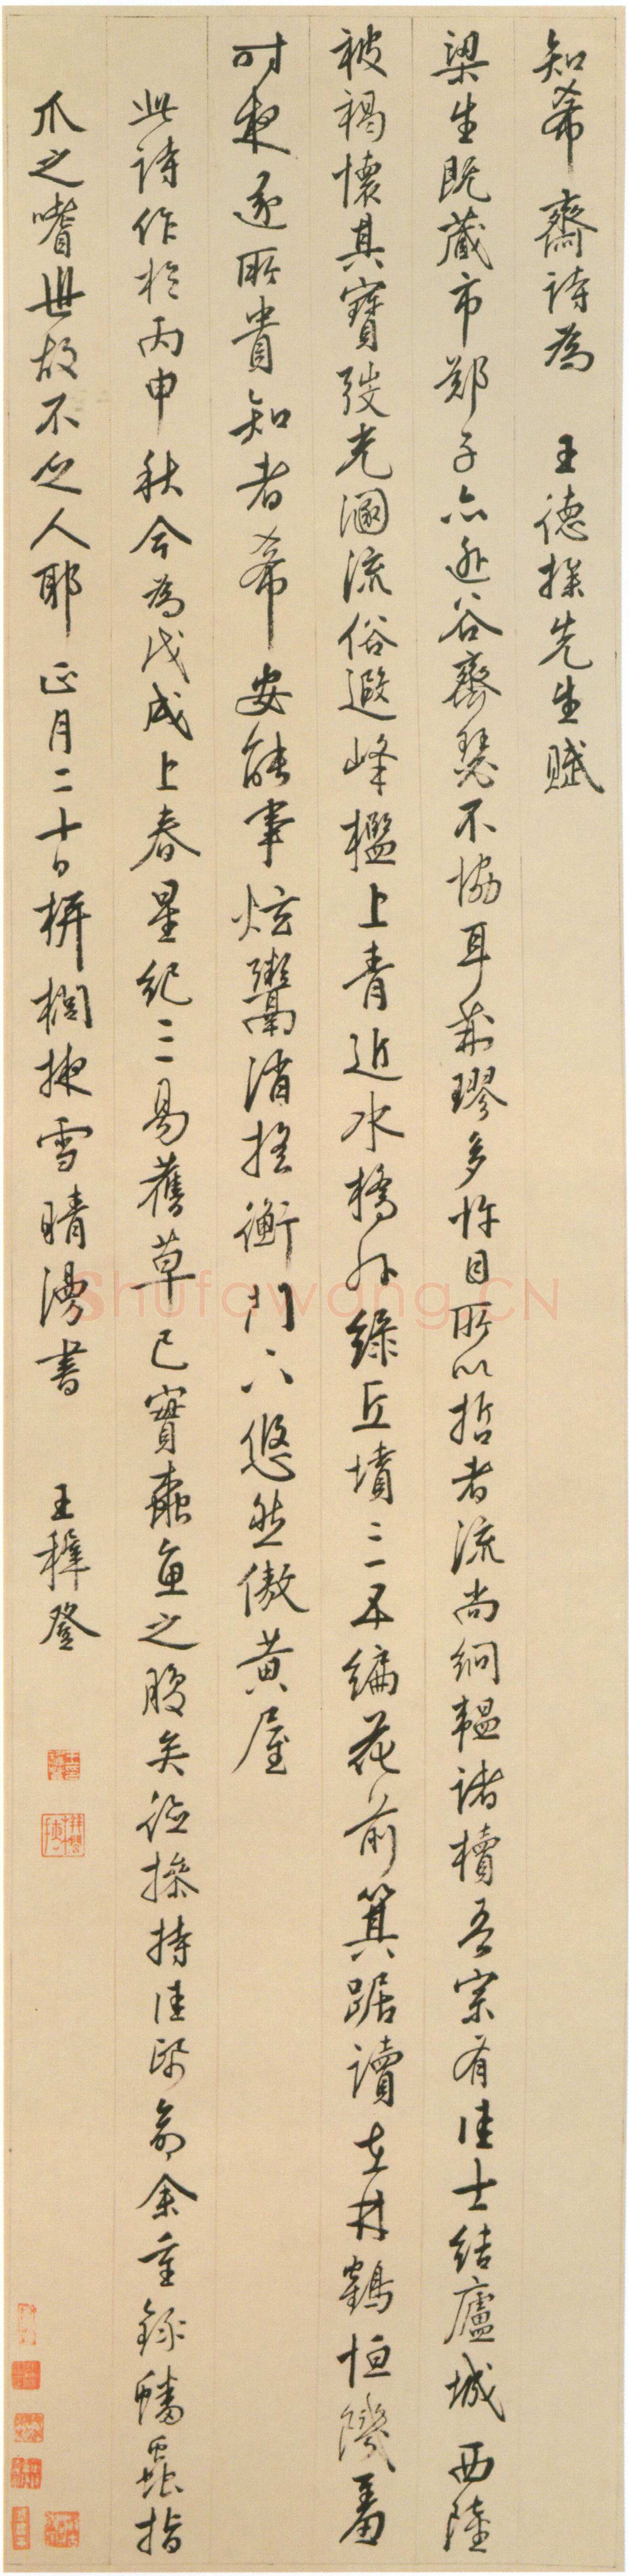 知希齋詩為 王德操先生賦
梁生既藏市鄭子亦逃谷齊瑟不協耳荊璆多忤目所以哲者流尚絅韞諸櫝吾宗有佳士結廬城西陸
被褐懷其寶弢光溷流俗遐峰檻上青近水橋外綠丘墳三五編花前箕踞讀在林鶴恒饑畜
時衣逐所貴知者希安能事炫鬻消搖衡門下悠然傲黃屋
此詩作於丙申秋今為戊戌上春星紀三易舊草已實蠹魚之腹矣德操持佳紙命余重錄蟠蟲指
爪之嗜世故不乏人耶 正月二十日栟櫚掖雪晴漫書 王穉登
Shufawang.CN